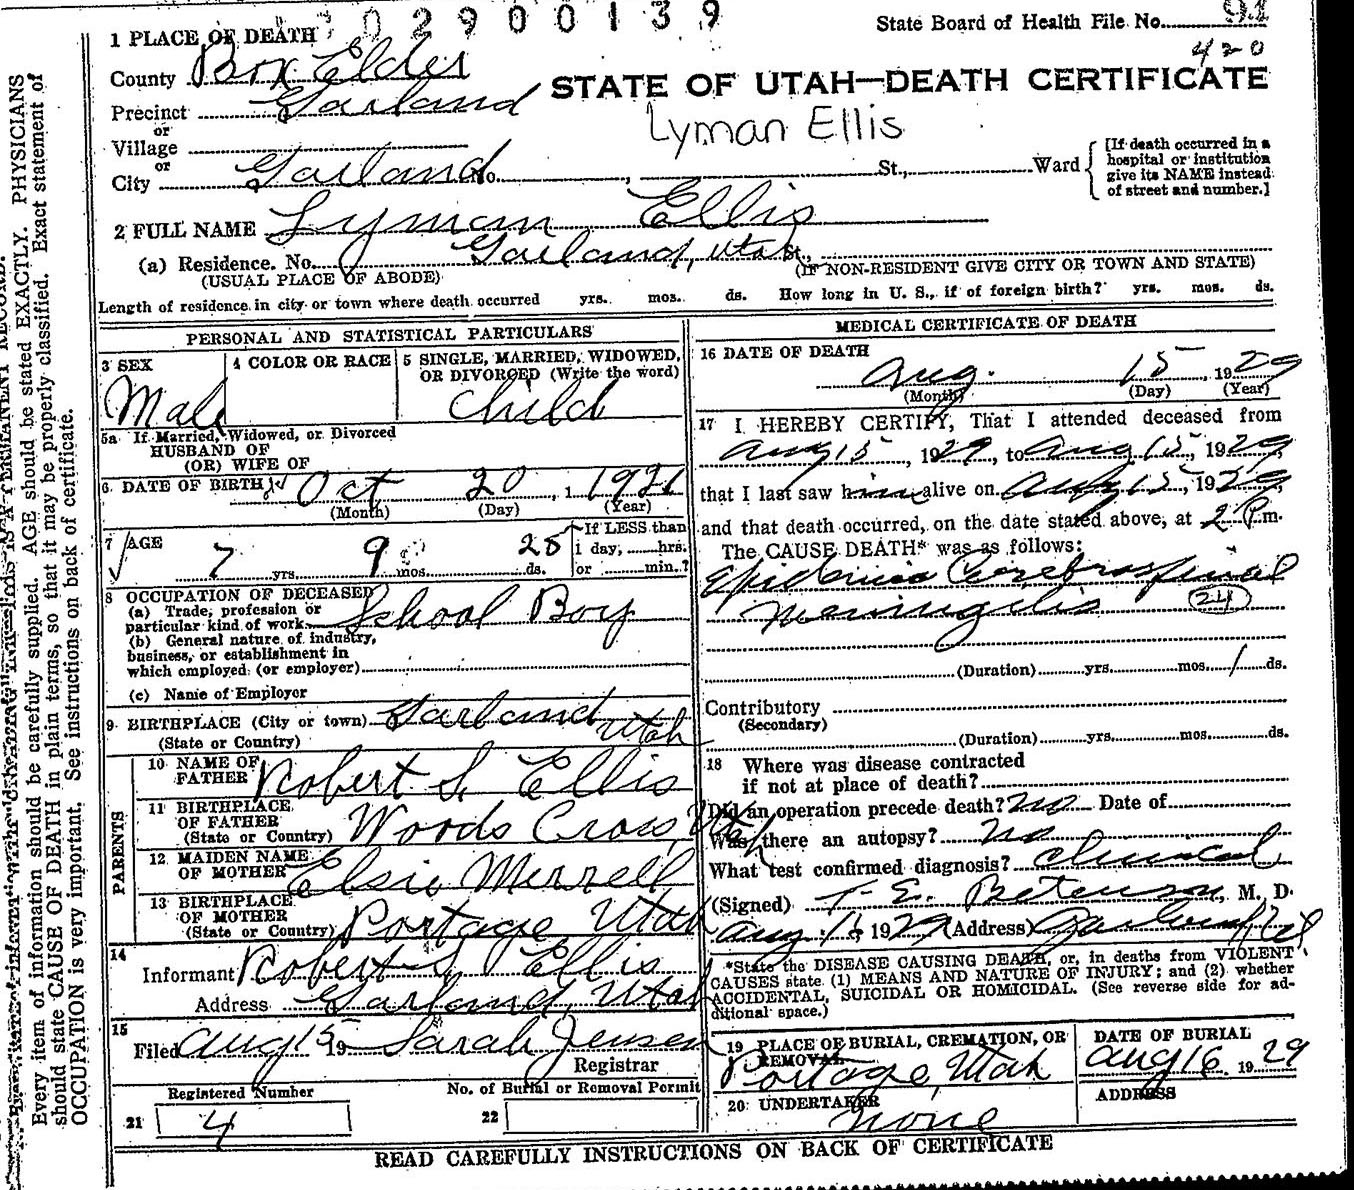 02900139
State Board of Health File No. 91
420
1 PLACE OF DEATH
County Box Elder
STATE OF UTAH—DEATH CERTIFICATE
Precinct Garland
or
Lyman Ellis
Village
or
City Garland No. , St., Ward
[If death occurred in a
hospital or institution
give its NAME instead
of street and number.]
2 FULL NAME Lyman Ellis
(a) Residence. No. Garland, Utah St.,
(USUAL PLACE OF ABODE)
(IF NON-RESIDENT GIVE CITY OR TOWN AND STATE)
Length of residence in city or town where death occurred yrs. mos. ds. How long in U. S., if of foreign birth? yrs. mos. ds.
PERSONAL AND STATISTICAL PARTICULARS
3 SEX
Male
4 COLOR OR RACE
5 SINGLE, MARRIED, WIDOWED,
OR DIVORCED (Write the word)
Child
5a If Married, Widowed, or Divorced
HUSBAND OF
(OR) WIFE OF
6 DATE OF BIRTH Oct 20, 1 1921
(Month) (Day) (Year)
7 AGE
7 yrs. 9 mos. 25 ds.
If LESS than
1 day, hrs.
or min.?
8 OCCUPATION OF DECEASED
(a) Trade, profession or
particular kind of work School Boy
(b) General nature of industry,
business, or establishment in
which employed (or employer)
(c) Name of Employer
9 BIRTHPLACE (City or town) Garland
(State or Country) Utah
PARENTS
10 NAME OF
FATHER Robert S. Ellis
11 BIRTHPLACE
OF FATHER
(State or Country) Woods Cross, Utah
12 MAIDEN NAME
OF MOTHER Elsie Merrell
13 BIRTHPLACE
OF MOTHER
(State or Country) Portage, Utah
14
Informant Robert S. Ellis
Address Garland, Utah
15
Filed Aug 15 19 Sarah Jensen
Registrar
Registered Number
21 4
No. of Burial or Removal Permit
22
MEDICAL CERTIFICATE OF DEATH
16 DATE OF DEATH
Aug. 15, 1929
(Month) (Day) (Year)
17 I HEREBY CERTIFY, That I attended deceased from
Aug 15, 1929, to Aug 15, 1929,
that I last saw him alive on Aug 15, 1929,
and that death occurred, on the date stated above, at 2 P.m.
The CAUSE DEATH* was as follows:
Epidemic Cerebrospinal
Meningitis 24
(Duration) yrs. mos. 1 ds.
Contributory
(Secondary)
(Duration) yrs. mos. ds.
18 Where was disease contracted
if not at place of death?
Did an operation precede death? No Date of
Was there an autopsy? No
What test confirmed diagnosis? Clinical
(Signed) , M. D.
Aug 16, 1929 (Address) Garland Ut
*State the DISEASE CAUSING DEATH, or, in deaths from VIOLENT
CAUSES state (1) MEANS AND NATURE OF INJURY; and (2) whether
ACCIDENTAL, SUICIDAL OR HOMICIDAL. (See reverse side for ad-
ditional space.)
19 PLACE OF BURIAL, CREMATION, OR
REMOVAL
Portage, Utah
DATE OF BURIAL
Aug 16 1929
20 UNDERTAKER
None
ADDRESS
READ CAREFULLY INSTRUCTIONS ON BACK OF CERTIFICATE
Every item of information should be carefully supplied. AGE should be stated EXACTLY. PHYSICIANS
should state CAUSE OF DEATH in plain terms, so that it may be properly classified. Exact statement of
OCCUPATION is very important. See instructions on back of certificate.